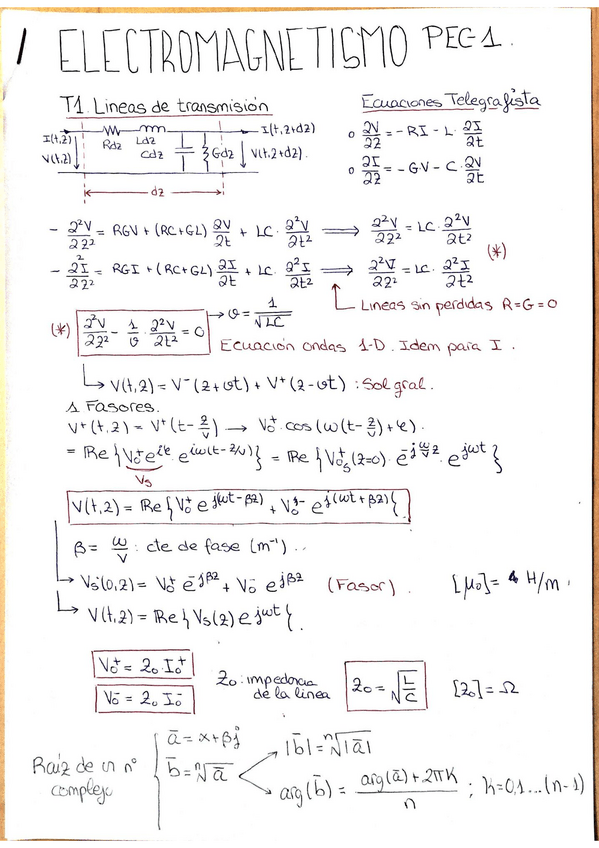 1 ELECTROMAGNETISMO PEC-1.
T1. Lineas de transmisión
Ecuaciones Telegrafista
I(t,z) Rdz Ldz Cdz Gdz I(t,z+dz)
V(t,z) V(t,z+dz).
dz
o ∂V/∂z = -RI - L · ∂I/∂t
o ∂I/∂z = -GV - C · ∂V/∂t
- ∂²V/∂z² = RGV + (RC+GL) ∂V/∂t + LC · ∂²V/∂t² ⟹ ∂²V/∂z² = LC · ∂²V/∂t²
(*)
- ∂²I/∂z² = RGI + (RC+GL) ∂I/∂t + LC · ∂²I/∂t² ⟹ ∂²I/∂z² = LC · ∂²I/∂t²
Lineas sin perdidas R=G=0
(*) ∂²V/∂z² - 1/v · ∂²V/∂t² = 0 → v = 1/√LC
Ecuación ondas 1-D. Idem para I.
↳ V(t,z) = V⁻(z+vt) + V⁺(z-vt) : Sol gral.
1 Fasores.
V⁺(t,z) = V⁺(t - z/v) → V₀⁺ · cos(ω(t - z/v) + φ).
= Re{V₀⁺e^{jφ} · e^{jω(t-z/v)}} = Re{V₀⁺s(z=0) · e^{-j ω/v z} · e^{jωt}}
Vs
V(t,z) = Re{V₀⁺ e^{j(ωt-βz)} + V₀⁻ e^{j(ωt+βz)}}
β = ω/v : cte de fase (m⁻¹)..
→ Vs(0,z) = V₀⁺ e^{-jβz} + V₀⁻ e^{jβz} (Fasor).
[μ₀] = H/m.
↳ V(t,z) = Re{Vs(z) e^{jωt}}.
V₀⁺ = Z₀ · I₀⁺
V₀⁻ = Z₀ I₀⁻
Z₀ : impedancia
de la linea
Z₀ = √L/C
[Z₀] = Ω
Raíz de un nº
complejo
ā = x + βj
b̄ = ⁿ√ā
|b̄| = ⁿ√|ā|
arg(b̄) = arg(ā) + 2πK / n ; k=0,1...(n-1)